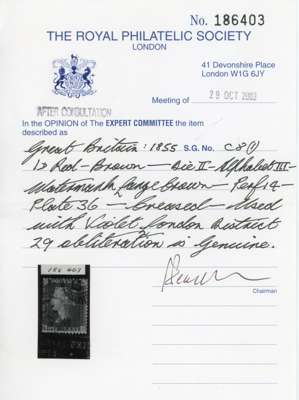 No. 186403
THE ROYAL PHILATELIC SOCIETY
LONDON
41 Devonshire Place
London W1G 6JY
Meeting of 29 OCT 2003
AFTER CONSULTATION
In the OPINION of The EXPERT COMMITTEE the item
described as
Great Britain: 1855 S.G. No. C8(1)
1D Red-Brown - Die II - Alphabet III -
Watermark Large Crown - Perf 14 -
Plate 36 - Creased - Used
with Violet London District
29 obliteration is Genuine.
Chairman
186 403